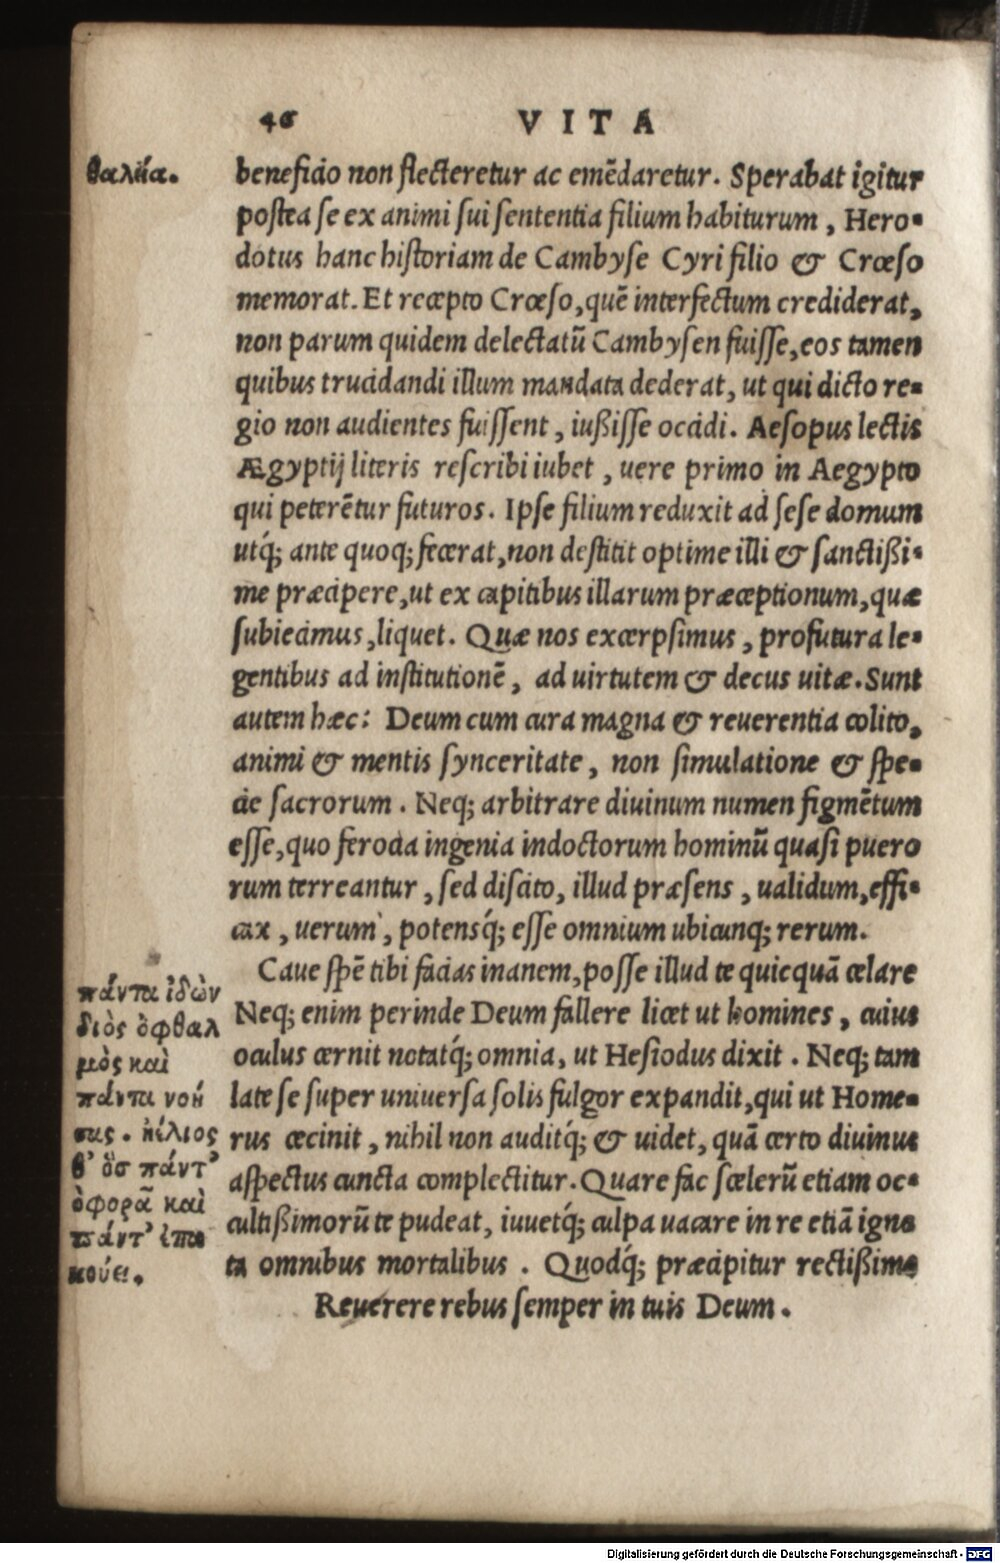 46 VITA
θαλεία.
beneficio non flecteretur ac emēdaretur. Sperabat igitur
postea se ex animi sui sententia filium habiturum, Hero-
dotus hanc historiam de Cambyse Cyri filio & Crœso
memorat. Et recepto Crœso, quē interfectum crediderat,
non parum quidem delectatū Cambysen fuisse, eos tamen
quibus trucidandi illum mandata dederat, ut qui dicto re-
gio non audientes fuissent, iußisse occidi. Aesopus lectis
Ægyptij literis rescribi iubet, uere primo in Aegypto
qui peterētur futuros. Ipse filium reduxit ad sese domum
utq́; ante quoq; fecerat, non destitit optime illi & sanctißi-
me præcipere, ut ex capitibus illarum præceptionum, quæ
subiecimus, liquet. Quæ nos excerpsimus, profutura le-
gentibus ad institutionē, ad uirtutem & decus uitæ. Sunt
autem hæc: Deum cum cura magna & reuerentia colito,
animi & mentis synceritate, non simulatione & spe-
cie sacrorum. Neq; arbitrare diuinum numen figmētum
esse, quo ferocia ingenia indoctorum hominū quasi puero
rum terreantur, sed discito, illud præsens, ualidum, effi-
cax, uerum, potensq́; esse omnium ubicunq; rerum.
Caue spē tibi facias inanem, posse illud te quicquā celare
Neq; enim perinde Deum fallere licet ut homines, cuius
oculus cernit notatq́; omnia, ut Hesiodus dixit. Neq; tam
late se super uniuersa solis fulgor expandit, qui ut Home-
rus cecinit, nihil non auditq́; & uidet, quā certo diuinus
aspectus cuncta complectitur. Quare fac scelerū etiam oc-
cultißimorū te pudeat, iuuetq́; culpa uacare in re etiā igno
ta omnibus mortalibus. Quodq́; præcipitur rectißime
Reuerere rebus semper in tuis Deum.
πάντα ἰδὼν
διὸς ὀφθαλ
μὸς καὶ
πάντα νοή
σας. ἠέλιος
θ' ὃσ πάντ'
ὀφορᾶ καὶ
πάντ' ἐπα
κούει.
Digitalisierung gefördert durch die Deutsche Forschungsgemeinschaft - DFG